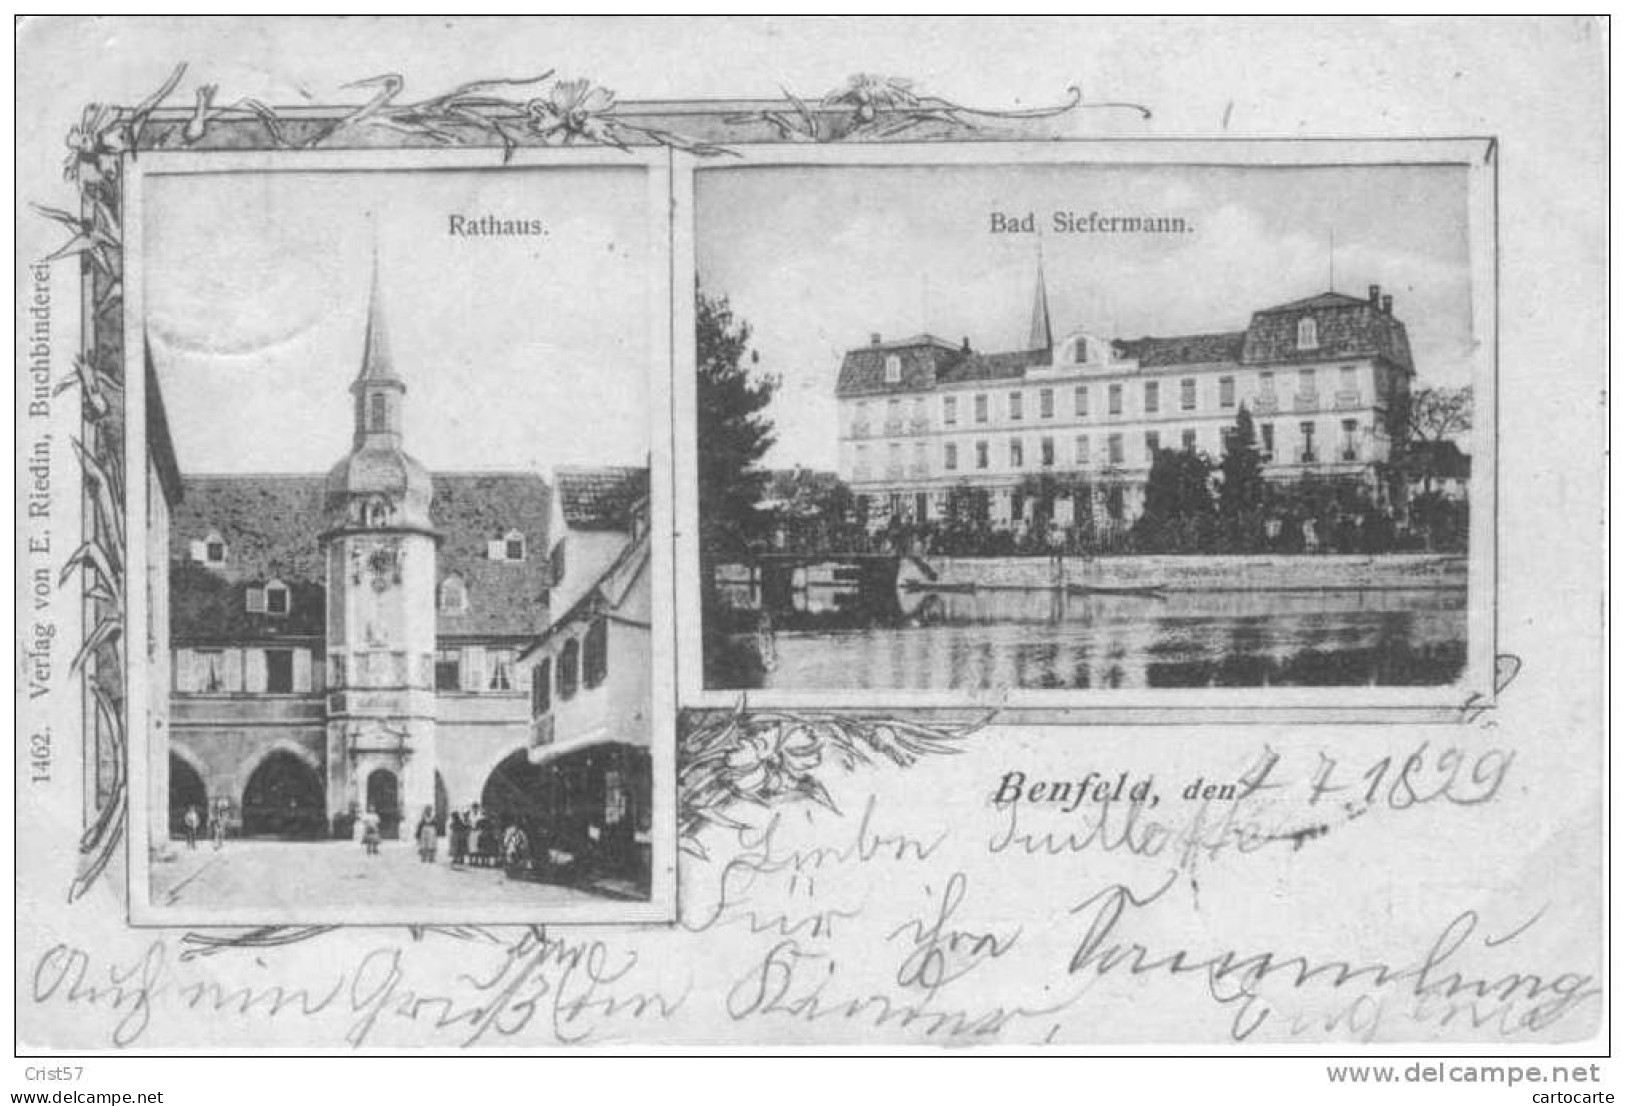 Rathaus.
Bad Siefermann.
1462. Verlag von E. Riedin, Buchbinderei.
Benfeld, den 7 7 1899
Liebe
Für ihre Sammlung
Auch ein Gruß von Kinder,
Crist57
www.delcampe.net
www.delcampe.net
cartocarte